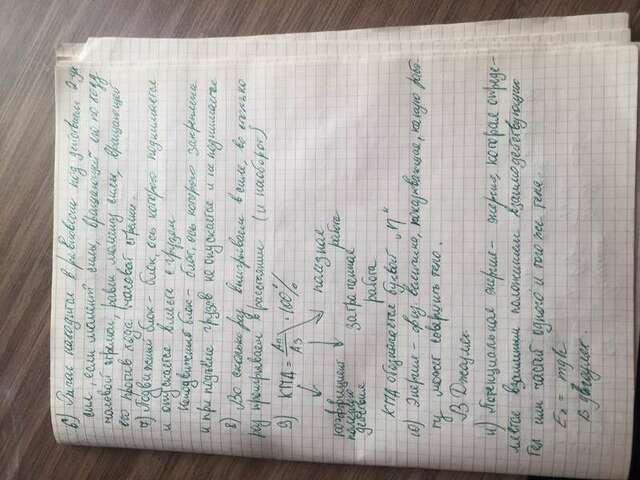 6) Рычаг находится в равновесии под действием 2-ух
сил, если момент силы, вращающей его по ходу
часовой стрелки, равен моменту силы, вращающей
его против хода часовой стрелке.
7) Подвижный блок - блок, ось которого поднимается
и опускается вместе с грузом
Неподвижный блок - блок, ось которого закреплена
и при подъёме грузов не опускается и не поднимается
8) Во сколько раз выигрываем в силе, во столько
раз проигрываем в расстоянии (и наоборот)
9) КПД = Ап/Аз · 100%
полезная
работа
коэффициент
полезного
действия
затраченная
работа
КПД обозначается буквой „η“
10) Энергия - физ. величина, показывающая, какую рабо-
ту может совершить тело.
В Джоулях
11) Потенциальная энергия - энергия, которая опреде-
ляется взаимным положением взаимодействующих
тел или частей одного и того же тела.
Еп = mgh
В джоулях.